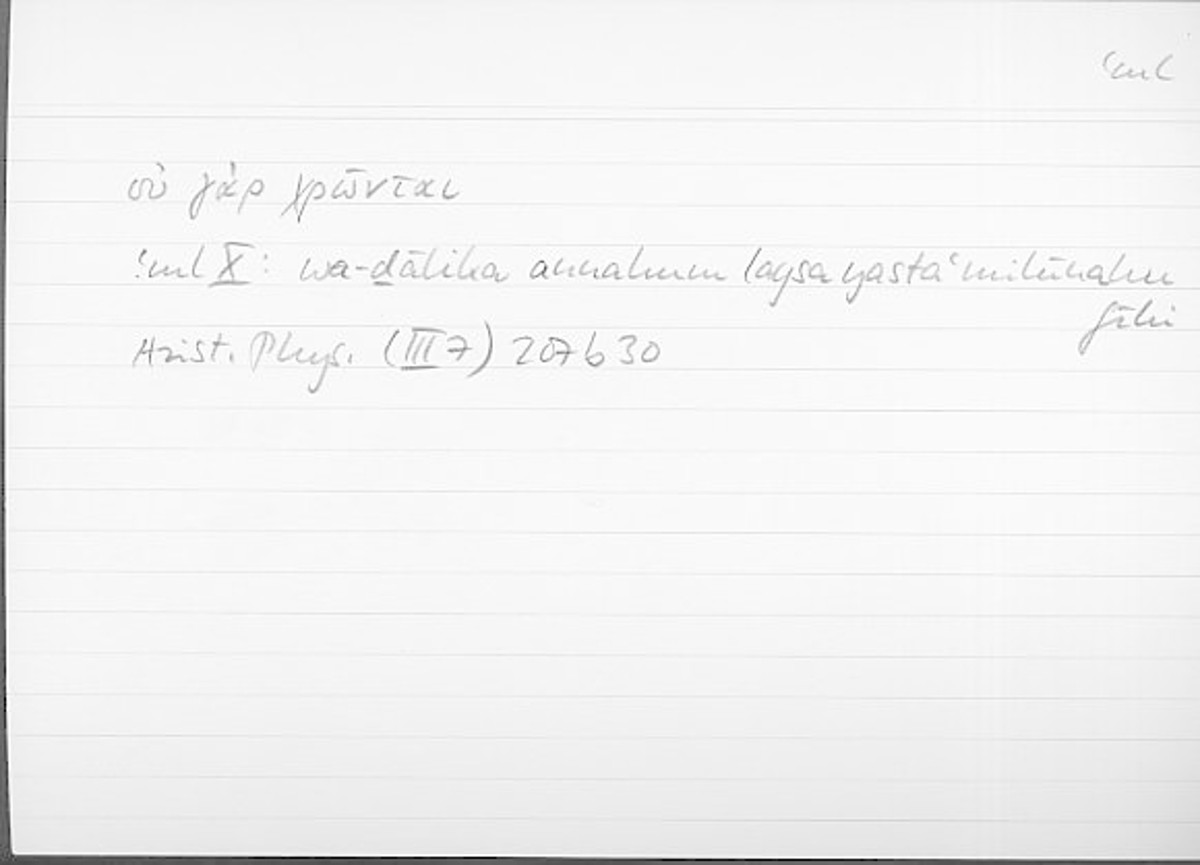 ʿml
οὐ γάρ χρῶνται
ʿml X: wa-ḏālika annahum laysa yastaʿmilūnahu
fīhi
Arist. Phys. (III 7) 207b30